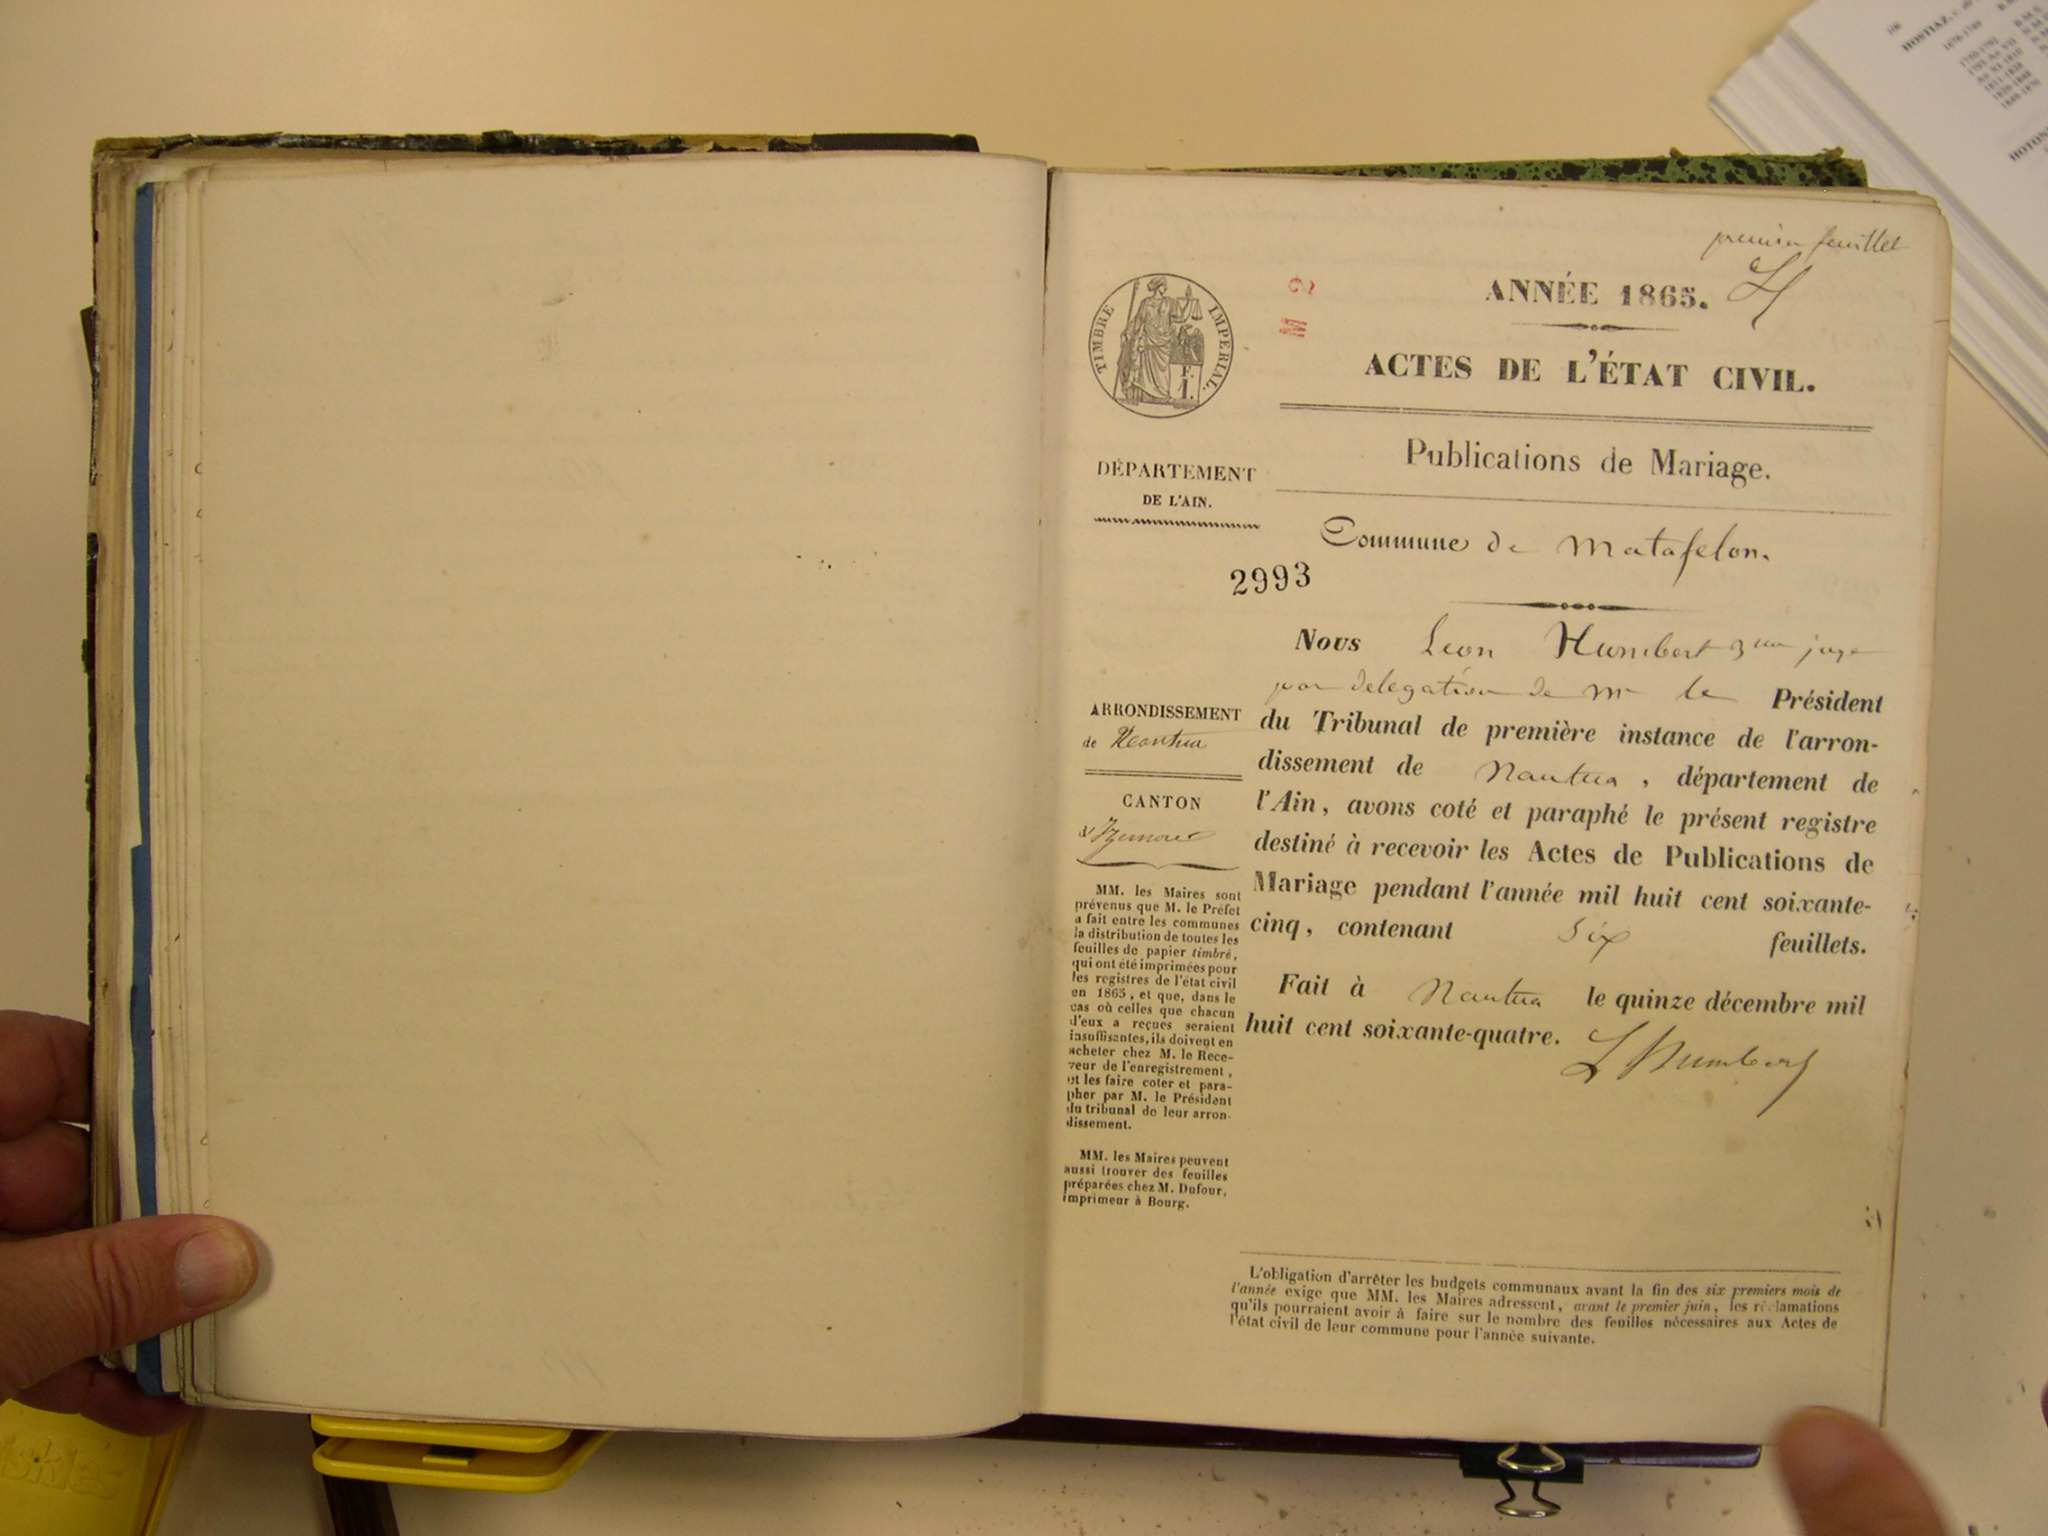 premier feuillet
LH
TIMBRE IMPERIAL.
F.
1.
ANNÉE 1865.
ACTES DE L'ÉTAT CIVIL.
Publications de Mariage.
DÉPARTEMENT
DE L'AIN.
Commune de Matafelon.
2993
ARRONDISSEMENT
de Nantua
CANTON
d'Izernore
MM. les Maires sont
prévenus que M. le Préfet
a fait entre les communes
la distribution de toutes les
feuilles de papier timbré,
qui ont été imprimées pour
les registres de l'état civil
en 1865, et que, dans le
cas où celles que chacun
d'eux a reçues seraient
insuffisantes, ils doivent en
acheter chez M. le Rece-
veur de l'enregistrement,
et les faire coter et para-
pher par M. le Président
du tribunal de leur arron-
dissement.
MM. les Maires peuvent
aussi trouver des feuilles
préparées chez M. Dufour,
imprimeur à Bourg.
Nous Léon Humbert juge
par délégation de Mr le Président
du Tribunal de première instance de l'arron-
dissement de Nantua, département de
l'Ain, avons coté et paraphé le présent registre
destiné à recevoir les Actes de Publications de
Mariage pendant l'année mil huit cent soixante-
cinq, contenant six feuillets.
Fait à Nantua le quinze décembre mil
huit cent soixante-quatre.
L Humbert
L'obligation d'arrêter les budgets communaux avant la fin des six premiers mois de
l'année exige que MM. les Maires adressent, avant le premier juin, les réclamations
qu'ils pourraient avoir à faire sur le nombre des feuilles nécessaires aux Actes de
l'état civil de leur commune pour l'année suivante.
HOSTIAZ,